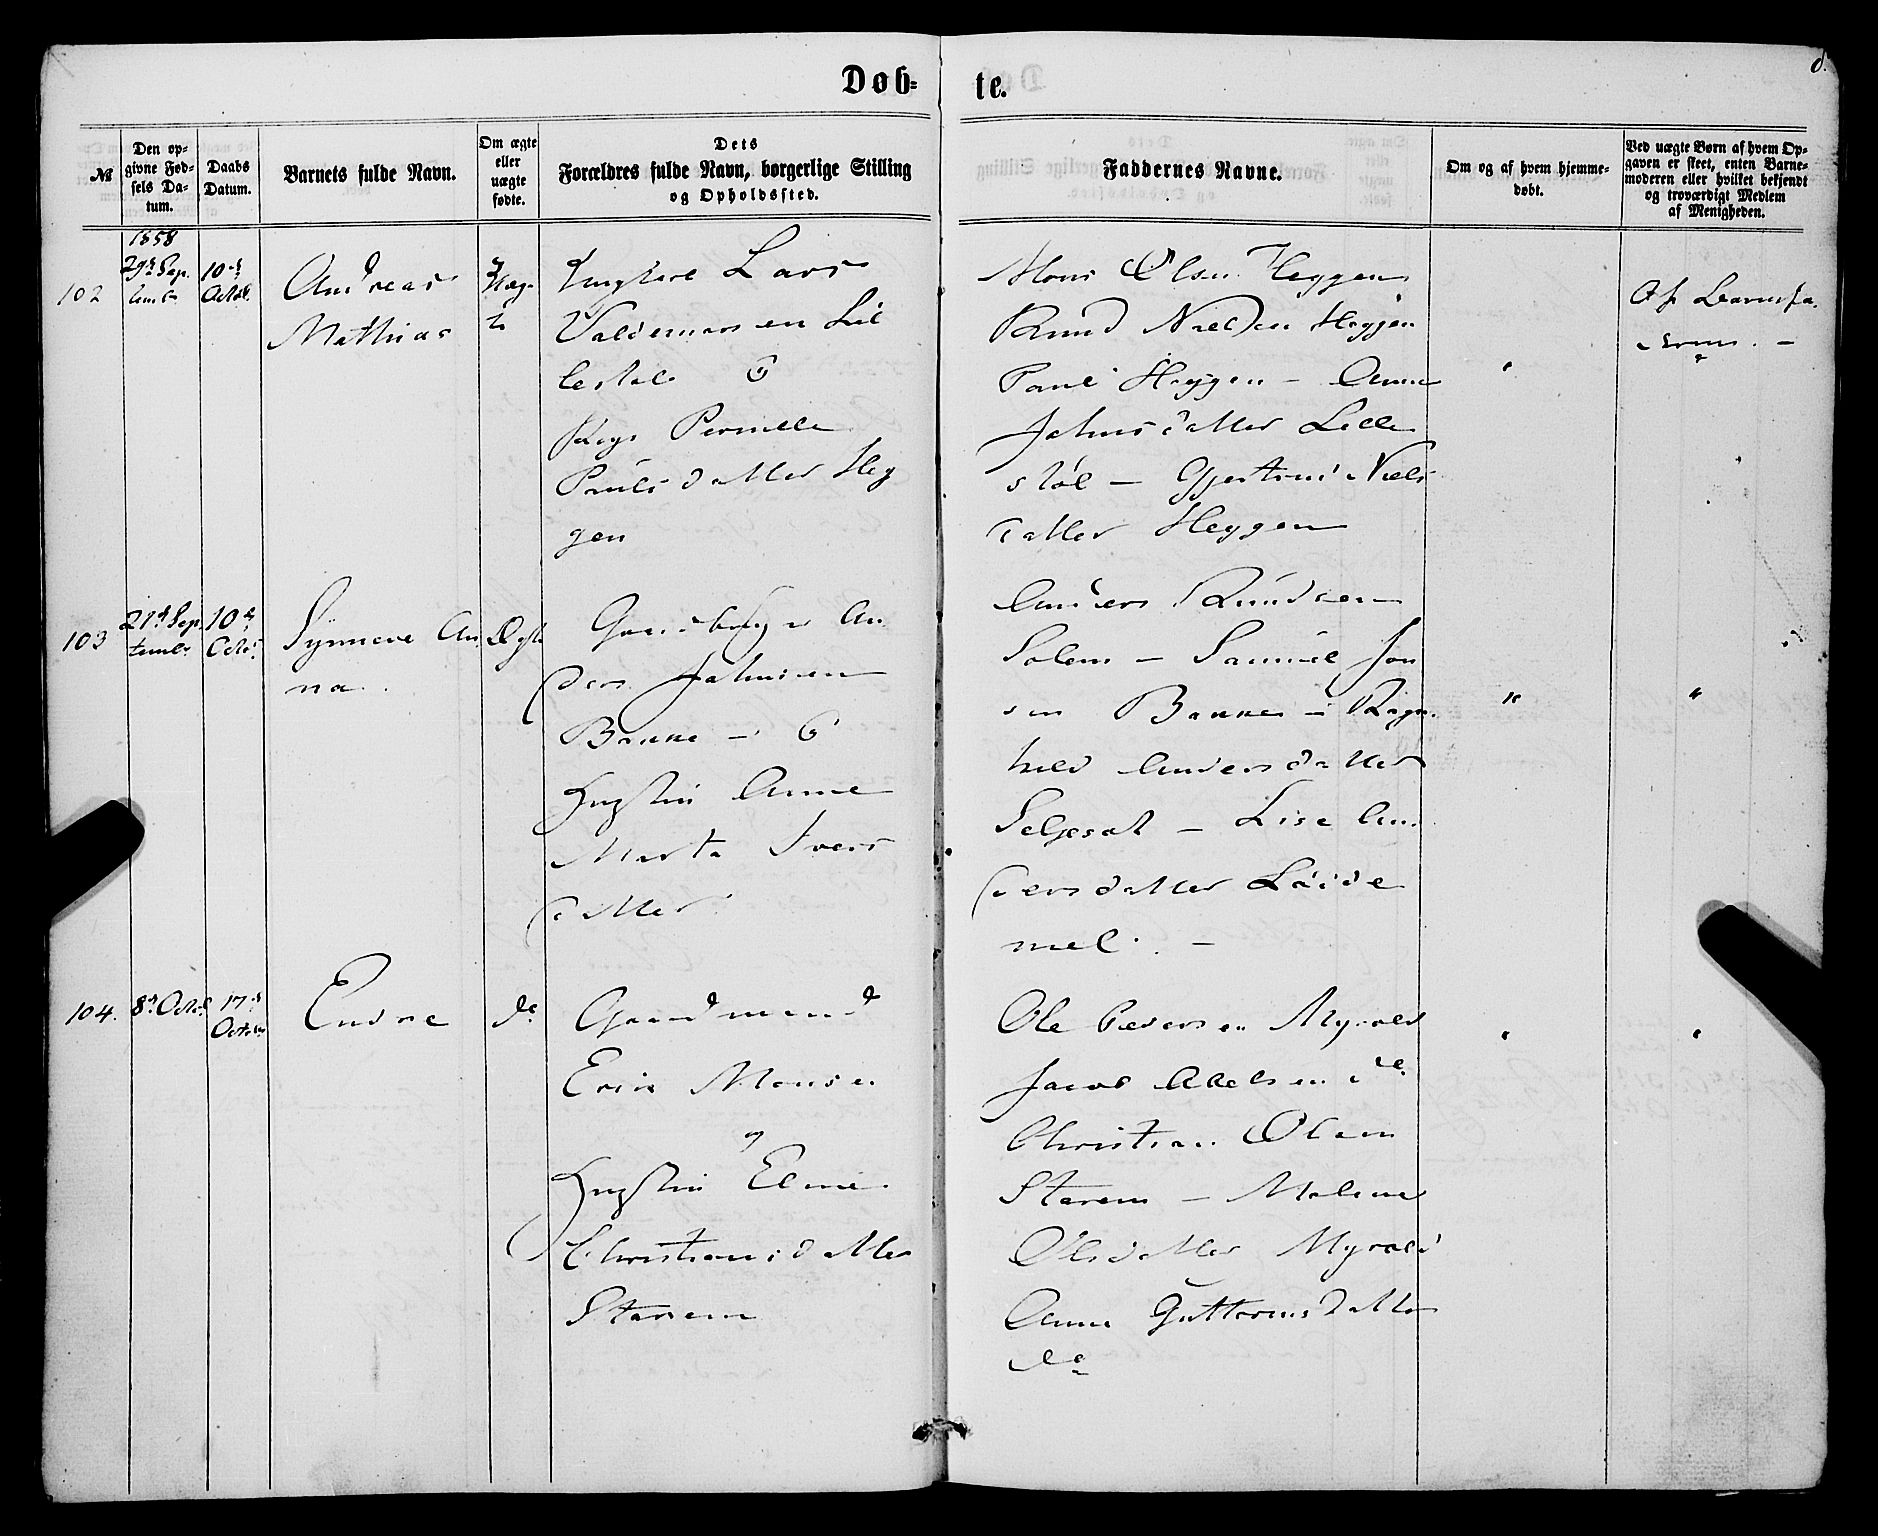 Døb-
te.
№
Den op-
givne Fød-
sels Da-
tum.
Daabs
Datum.
Barnets fulde Navn.
Om ægte
eller
uægte
fødte.
Dets
Forældres fulde Navn, borgerlige Stilling
og Opholdssted.
Faddernes Navne.
Om og af hvem hjemme-
døbt.
Ved uægte Børn af hvem Op-
gaven er skeet, enten Barne-
moderen eller hvilket bekjendt
og troværdigt Medlem
af Menigheden.
1858
102
29d Sep.
10d
Octob.
Andreas
Mathias
Uæg-
te
Ungkarl Lars
Valdemarsen Lil
lestøl &
Pige Pernille
Poulsdatter Heg
gen
Mons Olsen Heggen
Knud Nielsen Heggen
Poul Heggen - Anne
Johnsdatter Lille
støl - Gjertrud Niels
datter Heggen
Af Barnefa-
deren. -
103
21d Sep
tembr
10d
Octbr
Synneve An
na.
Ægte
Gaardbruger An
ders Johnsen
Bakke - &
Hustru Anne
Marta Ivers
datter
Anders Knudsen
Solem - Samuel Jon
sen Bakke - Ragn
hild Andersdatter
Seljesæt - Lise An
dersdatter
mel. -
"
"
104.
8d Octbr
17d
October
Endre
do
Gaardmand
Erik Monsen
og
Hustru Eline
Christiansdatter
Starem
Ole Pedersen Myrold
Jacob Abelsen do
Christian Olsen
Starem - Malene
Olsdatter Myrold
Anne Guttormsdatter
do
"
"